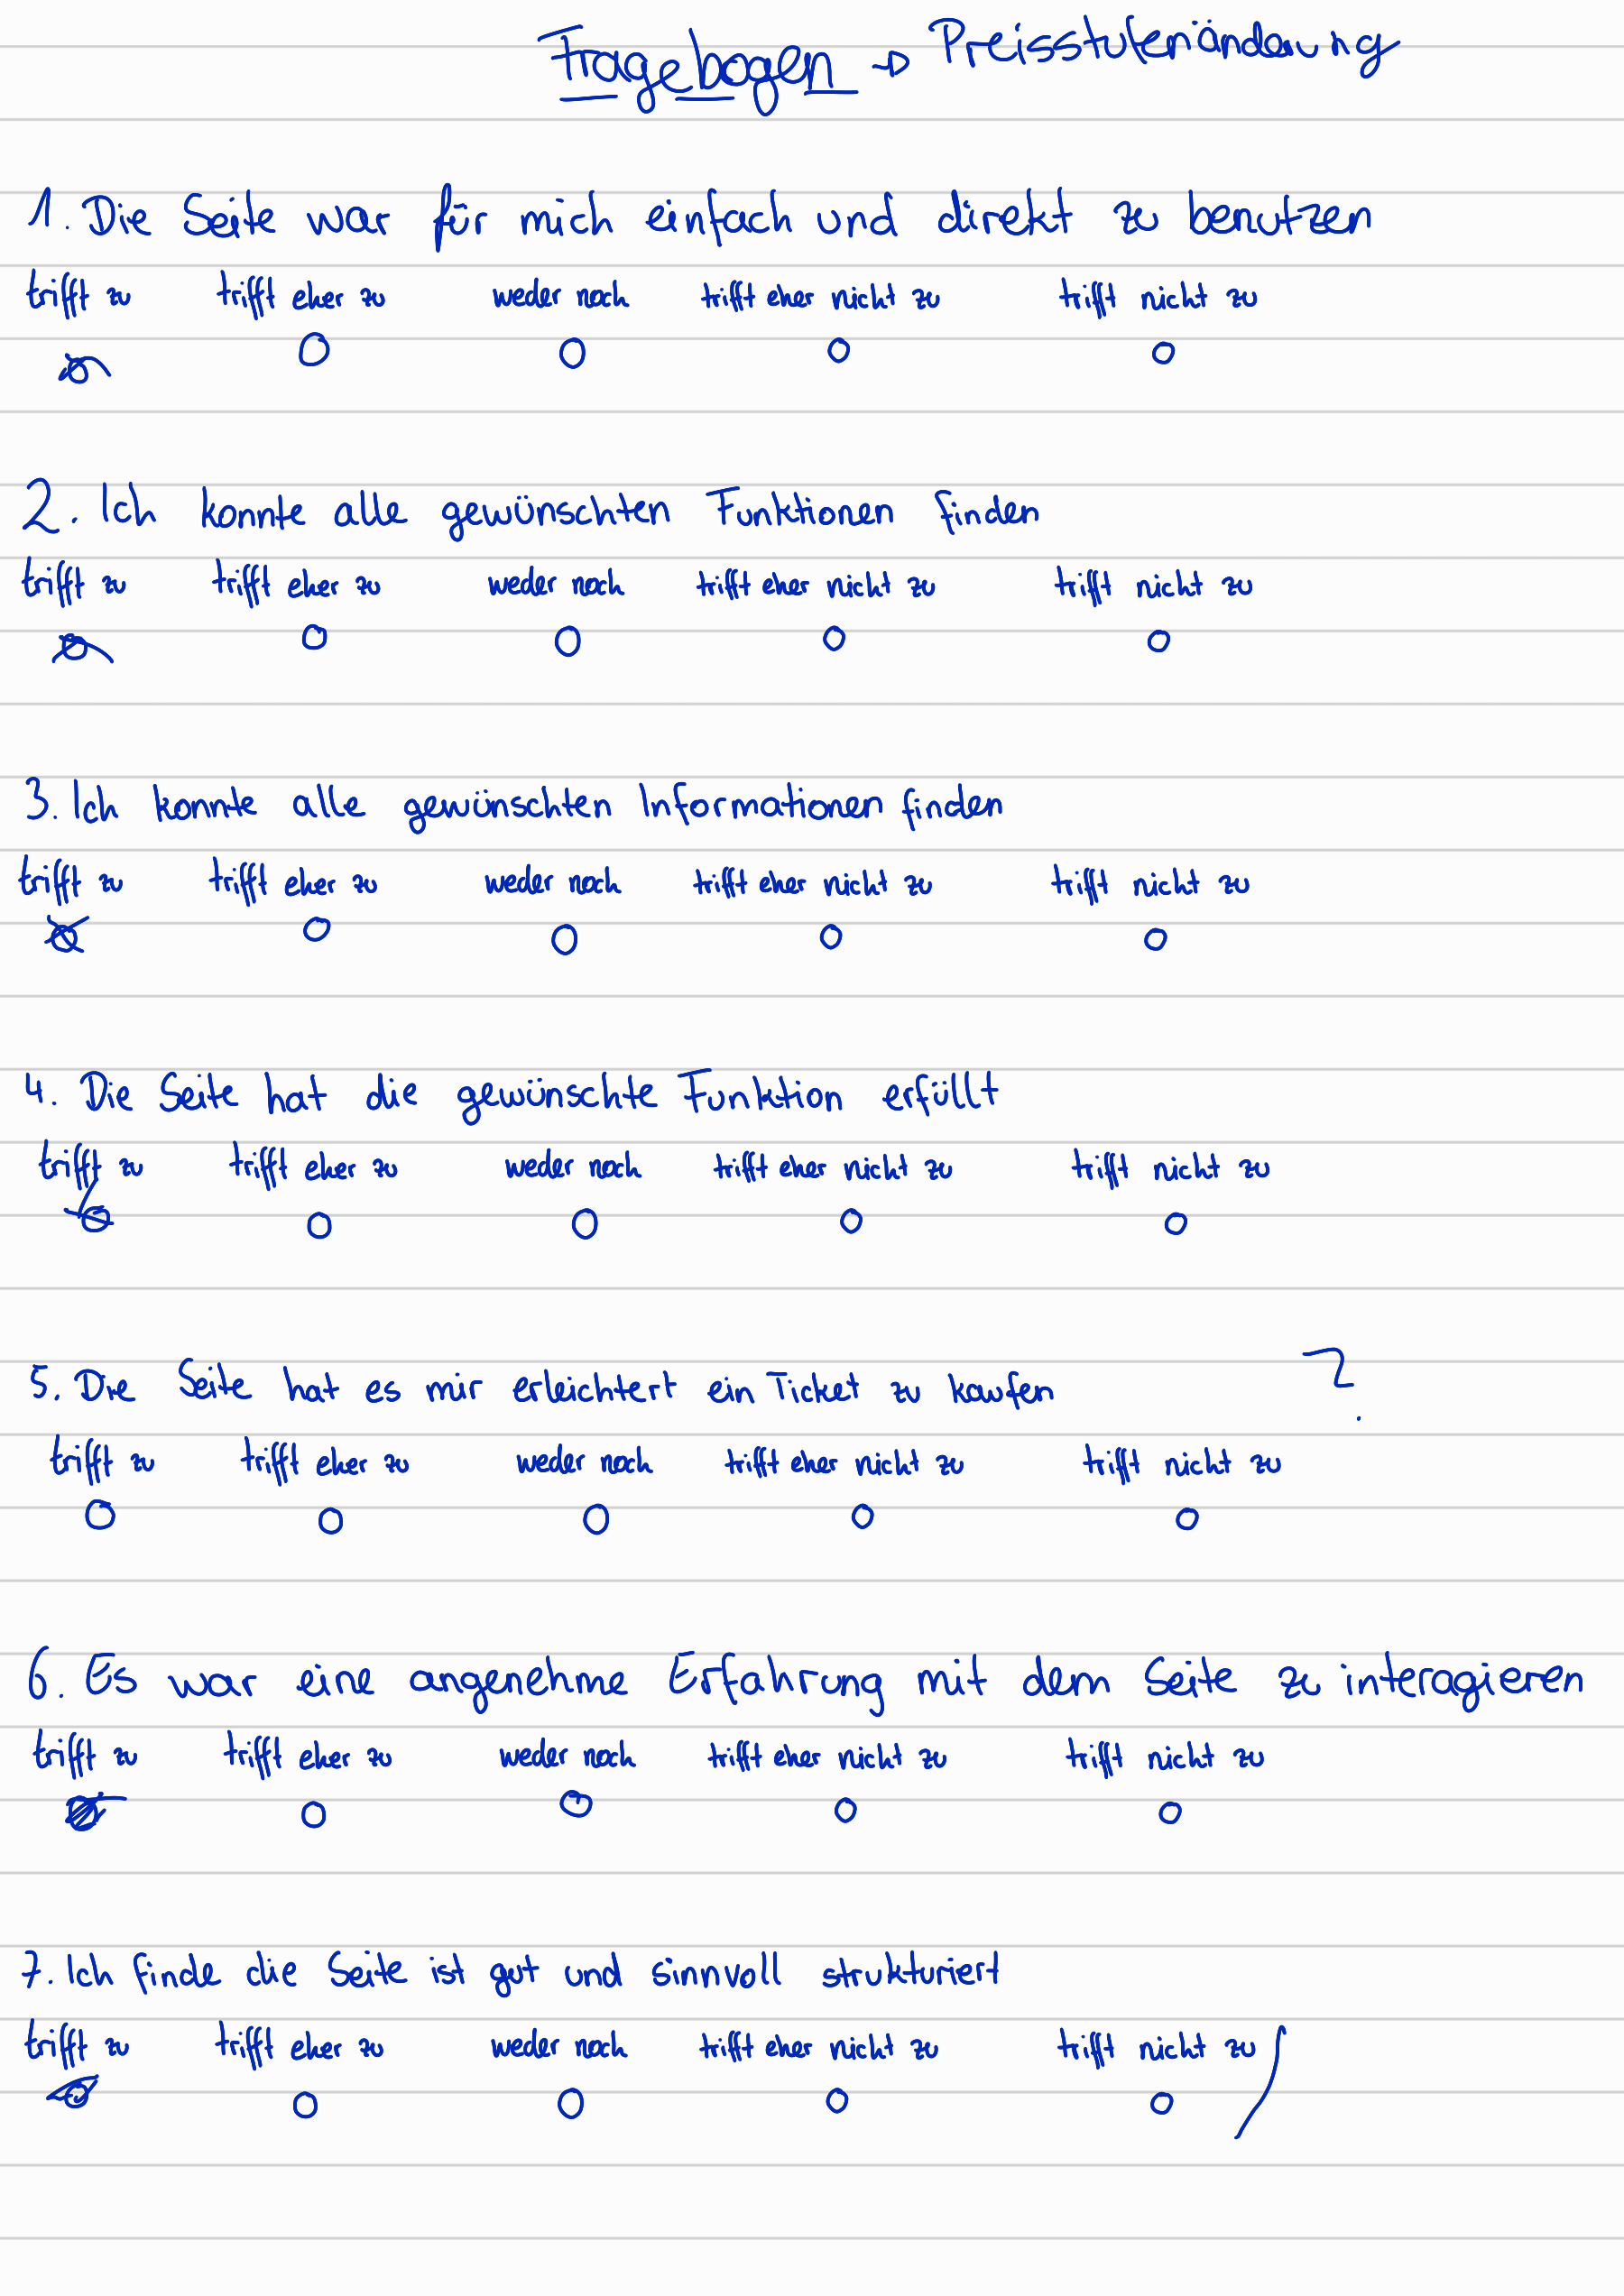 Fragebogen → Preisstufenänderung
1. Die Seite war für mich einfach und direkt zu benutzen
trifft zu trifft eher zu weder noch trifft eher nicht zu trifft nicht zu
2. Ich konnte alle gewünschten Funktionen finden
trifft zu trifft eher zu weder noch trifft eher nicht zu trifft nicht zu
3. Ich konnte alle gewünschten Informationen finden
trifft zu trifft eher zu weder noch trifft eher nicht zu trifft nicht zu
4. Die Seite hat die gewünschte Funktion erfüllt
trifft zu trifft eher zu weder noch trifft eher nicht zu trifft nicht zu
5. Die Seite hat es mir erleichtert ein Ticket zu kaufen ?
trifft zu trifft eher zu weder noch trifft eher nicht zu trifft nicht zu
6. Es war eine angenehme Erfahrung mit dem Seite zu interagieren
trifft zu trifft eher zu weder noch trifft eher nicht zu trifft nicht zu
7. Ich finde die Seite ist gut und sinnvoll strukturiert
trifft zu trifft eher zu weder noch trifft eher nicht zu trifft nicht zu